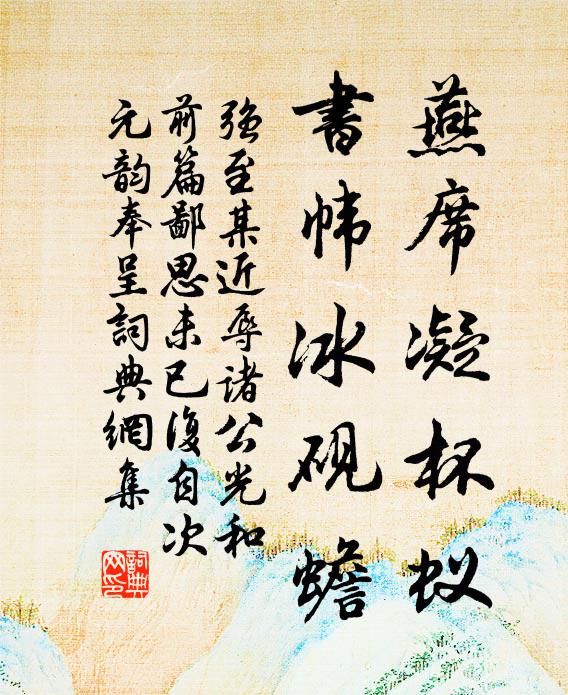 燕席凝杯蚁
書帏冰砚蟾
强至某近辱诸公光和
前篇鄙思未已復自次
元韵奉呈詞典網集
詞典
网印